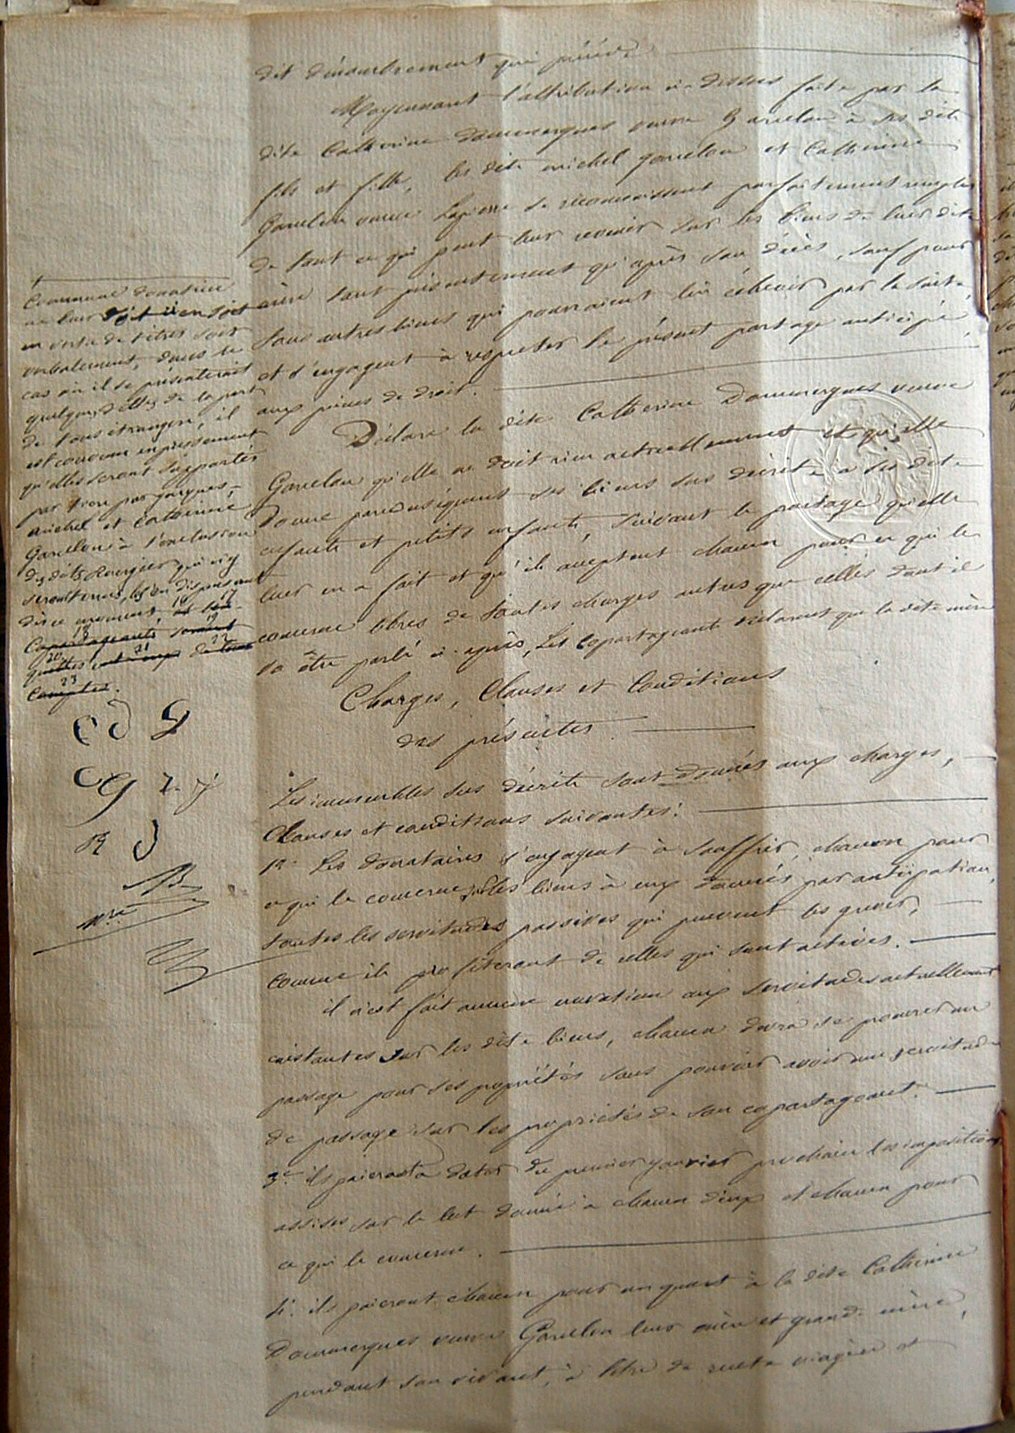 dit dénombrement qui précède
Moyennant l'attribution ci-dessus faite par la
dite Catherine Doumergues veuve Garrelon à ses dits
fils et fille, les dits michel Garrelon et Catherine
Garrelon veuve se reconnaissent parfaitement remplis
de tout ce qui peut leur revenir sur les biens de leur dite
mère tant présentement qu'après son décès, sauf pour
tous autres biens qui pourraient lui échevoir par la suite,
et s'engagent à respecter le présent partage anticipé,
aux peines de droit.
Déclare la dite Catherine Doumergues veuve
Garrelon qu'elle ne doit rien actuellement et qu'elle
donne par conséquent ses biens sus décrits à ses dits
enfants et petits enfants, suivant le partage qu'elle
leur en a fait et qu'ils acceptent chacun pour ce qui le
concerne libres de toutes charges autres que celles dont il
va être parlé ci-après, Les copartageants déclarent que la dite mère
commune donatrice
ne leur doit rien soit
en vertu de titres soit
verbalement, dans le
cas où il se présenterait
quelques dettes de la part
de tous étrangers, il
est convenu expressément
qu'elles seront supportées
par tiers par jacques,
michel et Catherine
Garrelon à l'exclusion
des dits Rougier qui n'y
seront tenus, les en dispensant
dès ce moment, 16 17
copartageants seront 18 19
quittes 20 21 22
comptes. 23
Charges, Clauses et Conditions
des présentes
Les immeubles sus décrits sont donnés aux charges,
Clauses et conditions suivantes:
1º Les donataires s'engagent à souffrir, chacun pour
ce qui le concerne, sur les biens à eux donnés par anticipation,
toutes les servitudes passives qui peuvent les grever,
comme ils profiteront de celles qui sont actives.
il n'est fait aucune novation aux servitudes actuellement
existantes sur les dits biens, chacun devra se pourvoir au
passage pour ses propriétés sans pouvoir avoir une servitude
de passage sur les propriétés de son copartageant.
3º ils paieront à dater du premier janvier prochain les impositions
assises sur le lot donné à chacun d'eux et chacun pour
ce qui le concerne.
4º ils paieront chacun pour un quart à la dite Catherine
Doumergues veuve Garrelon leur mère et grand-mère,
pendant son vivant, à titre de rente viagère et